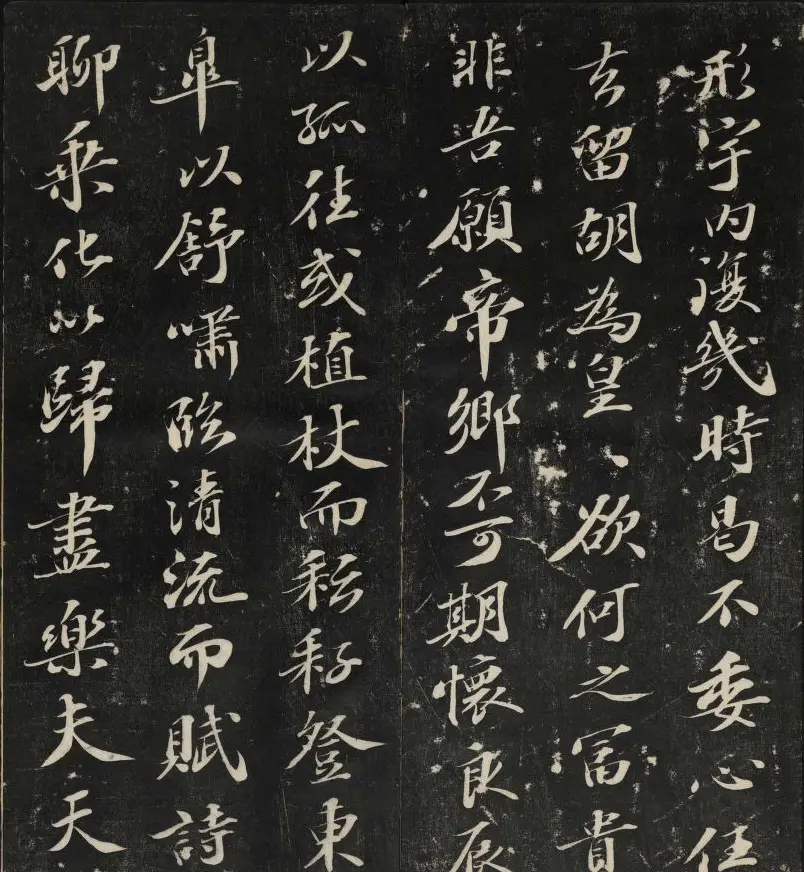 形宇内復幾時曷不委心任
去留胡為皇、欲何之富貴
非吾願帝鄉不可期懷良辰
以孤往或植杖而耘耔登東
皐以舒嘯臨清流而賦詩
聊乗化以歸盡樂夫天